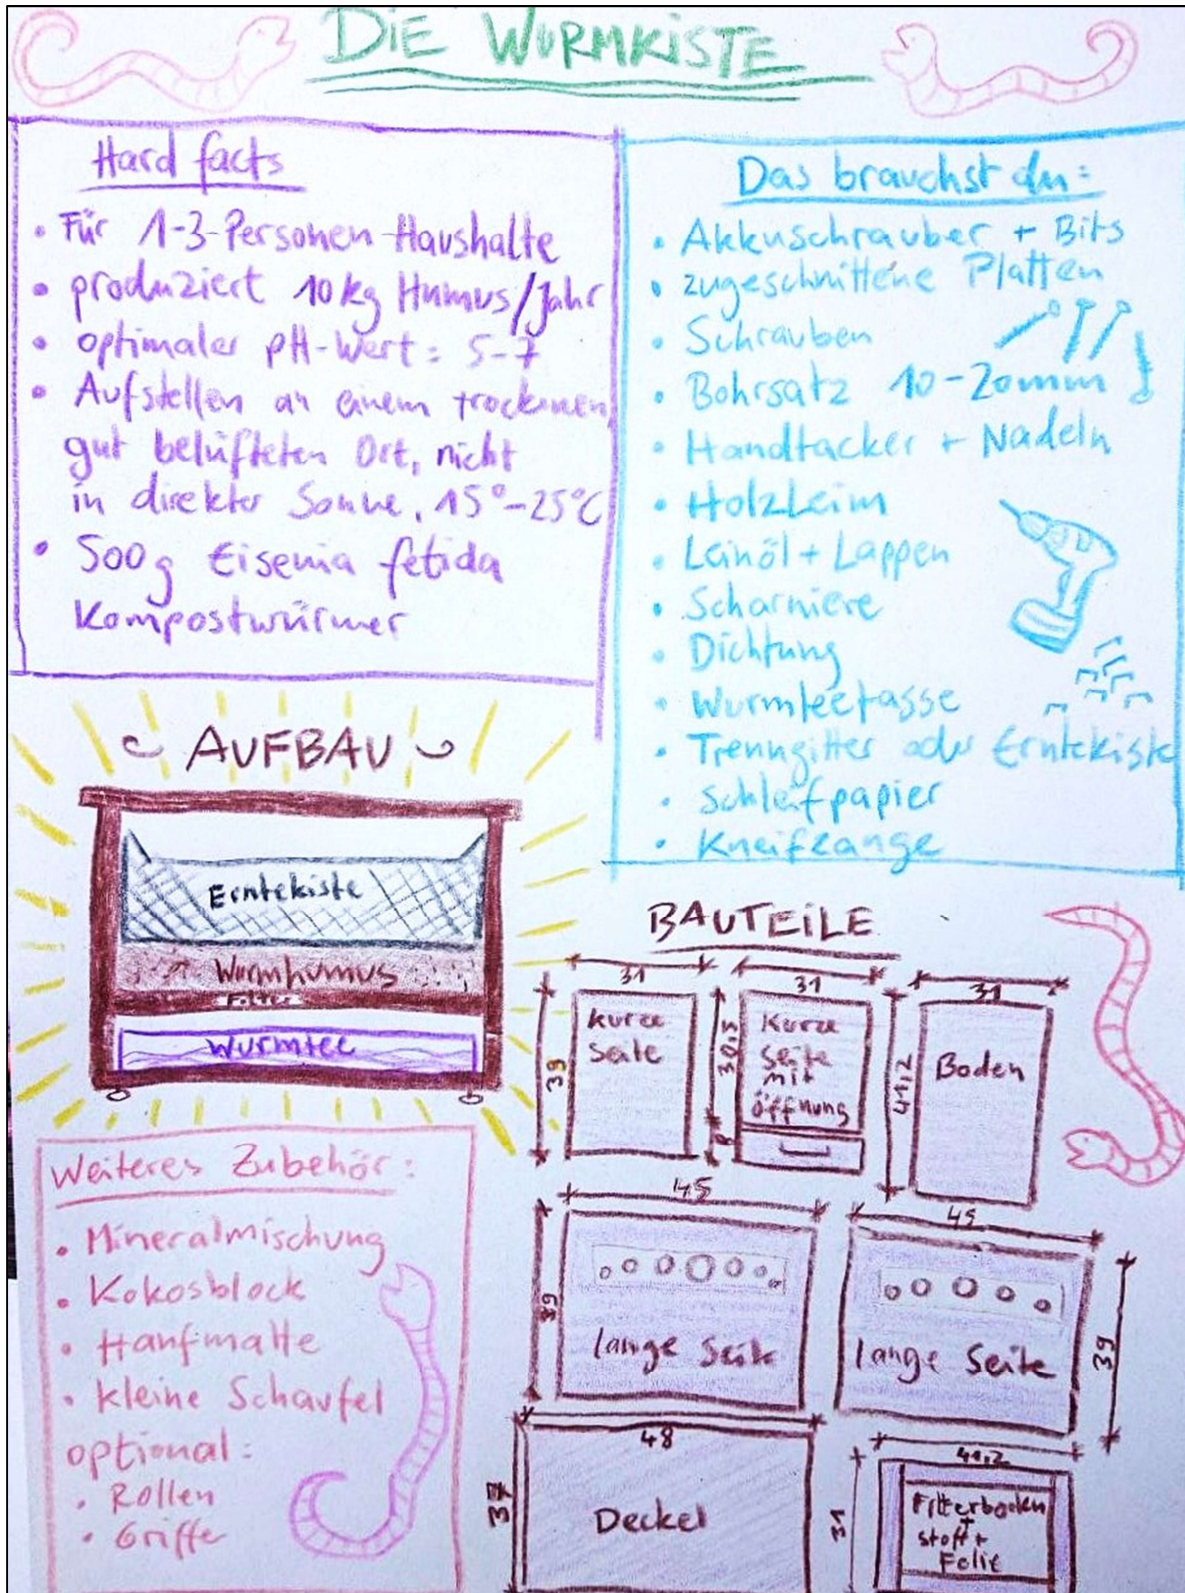 DIE WURMKISTE
Hard facts
• Für 1-3-Personen-Haushalte
• produziert 10 kg Humus/Jahr
• optimaler pH-Wert: 5-7
• Aufstellen an einem trockenen,
gut belüfteten Ort, nicht
in direkter Sonne, 15°-25°C
• 500g Eisenia fetida
Kompostwürmer
Das brauchst du:
• Akkuschrauber + Bits
• zugeschnittene Platten
• Schrauben
• Bohrsatz 10-20mm
• Handtacker + Nadeln
• Holzleim
• Leinöl + Lappen
• Scharniere
• Dichtung
• Wurmteetasse
• Trenngitter oder Erntekiste
• Schleifpapier
• Kneifzange
AUFBAU
Erntekiste
Wurmhumus
Filter
Wurmtee
Weiteres Zubehör:
• Mineralmischung
• Kokosblock
• Hanfmatte
• kleine Schaufel
optional:
• Rollen
• Griffe
BAUTEILE
31
39
kurze
Seite
31
30,5
8
Kurze
Seite
mit
Öffnung
31
41,2
Boden
45
39
lange Seite
45
39
lange Seite
48
37
Deckel
41,2
31
Filterboden
+
stoff +
Folie